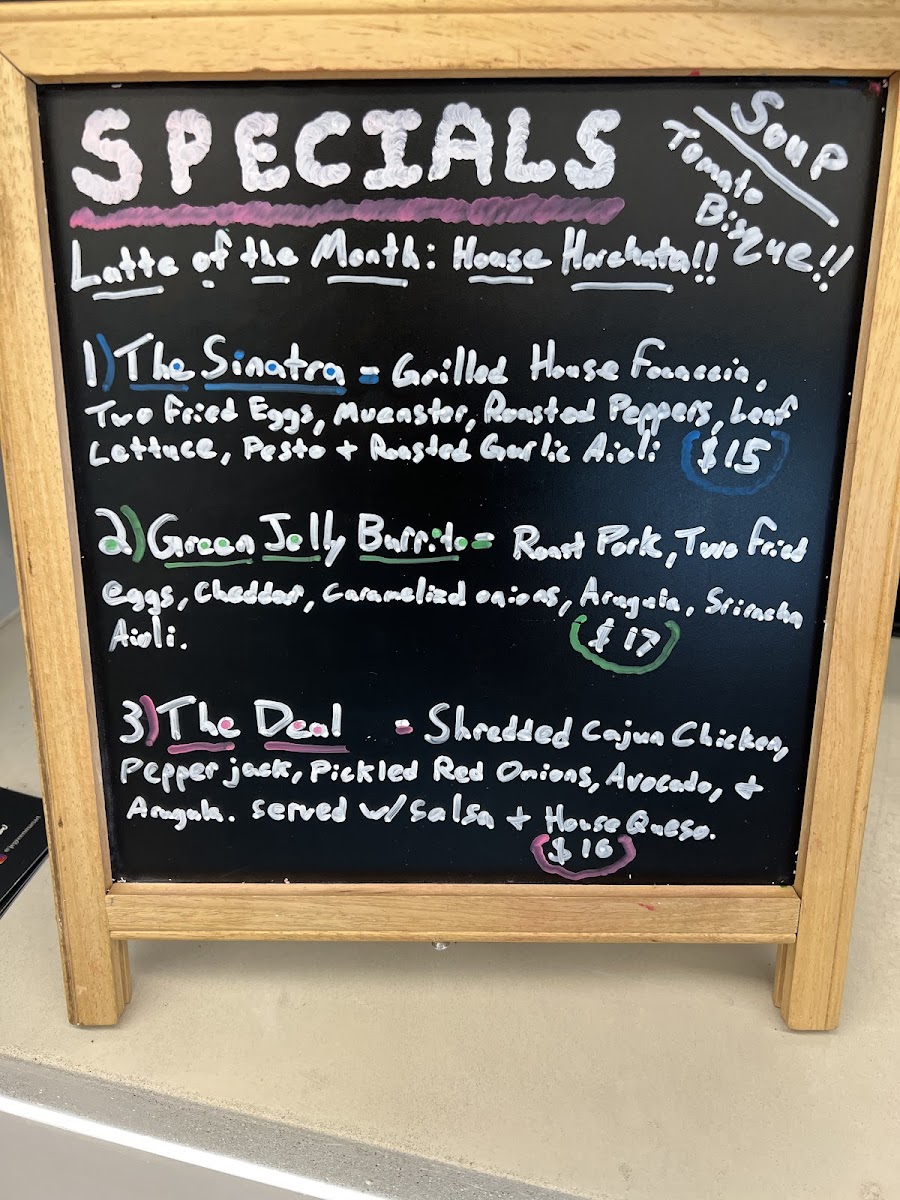 SPECIALS
Soup
Tomato
Bisque!!
Latte of the Month: House Horchata!!
1) The Sinatra = Grilled House Focaccia,
Two Fried Eggs, Muenster, Roasted Peppers, Leaf
Lettuce, Pesto + Roasted Garlic Aioli $15
2) Green Jelly Burrito = Roast Pork, Two Fried
eggs, Cheddar, Caramelizd onions, Arugula, Sriracha
Aioli. $17
3) The Deal = Shredded Cajun Chicken,
Pepper jack, Pickled Red Onions, Avocado, +
Arugula. served w/ Salsa + House Queso.
$16